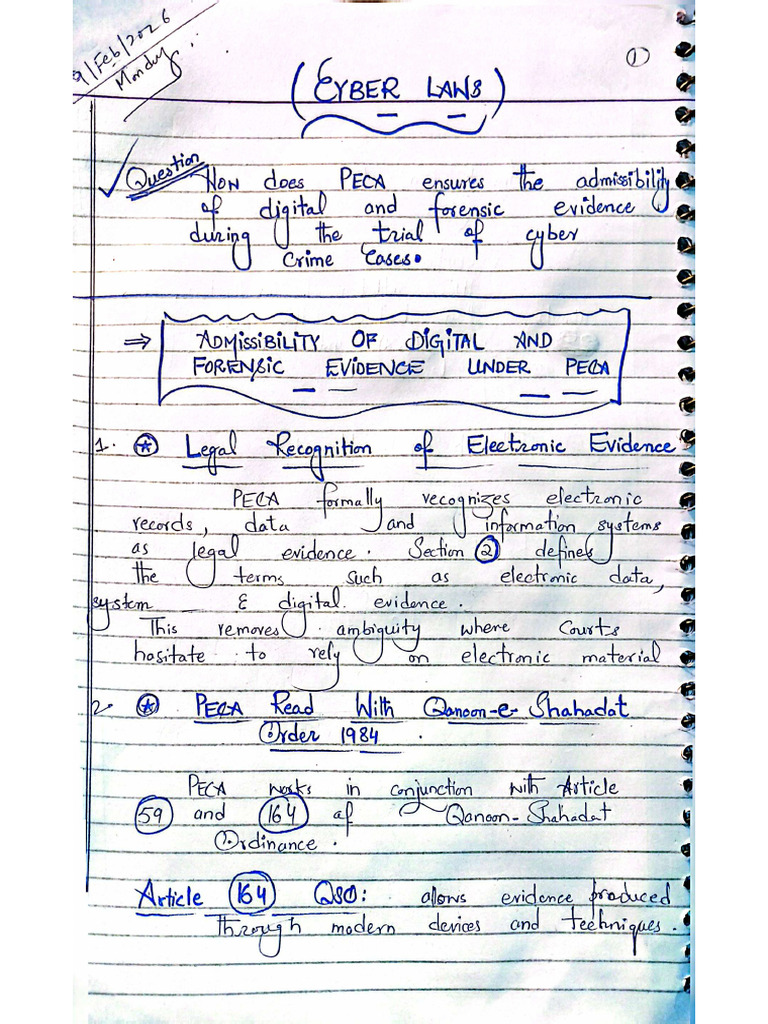 9/Feb/2026
Monday
1
(CYBER LAWS)
Question How does PECA ensures the admissibility
of digital and forensic evidence
during the trial of cyber
Crime Cases.
⇒ ADMISSIBILITY OF DIGITAL AND
FORENSIC EVIDENCE UNDER PECA
1. ★ Legal Recognition of Electronic Evidence
PECA formally recognizes electronic
records, data and information systems
as legal evidence. Section 2 defines
the terms such as electronic data,
system & digital evidence.
This removes ambiguity where Courts
hasitate to rely on electronic material
2. ★ PECA Read With Qanoon-e-Shahadat
Order 1984.
PECA works in conjunction with Article
59 and 164 of Qanoon-Shahadat
Ordinance.
Article 164 QSO: allows evidence produced
through modern devices and techniques.